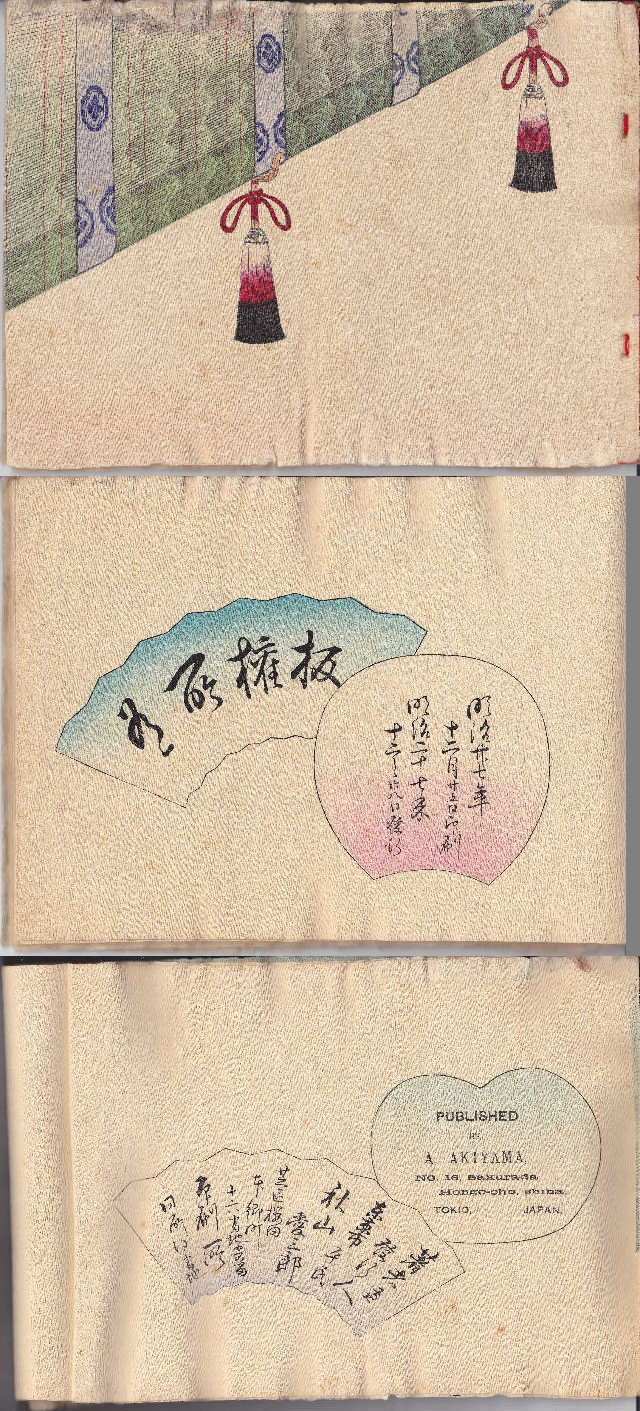 板權所有
明治廿七年
十二月廿五日印刷
明治二十七年
十二月廿八日發行
PUBLISHED
BY
A AKIYAMA
No. 16, Sakurada
Hongo-cho, Shiba,
TOKIO, JAPAN.
發行人
秋山
愛三郎
芝區桜田
本郷町
印刷所